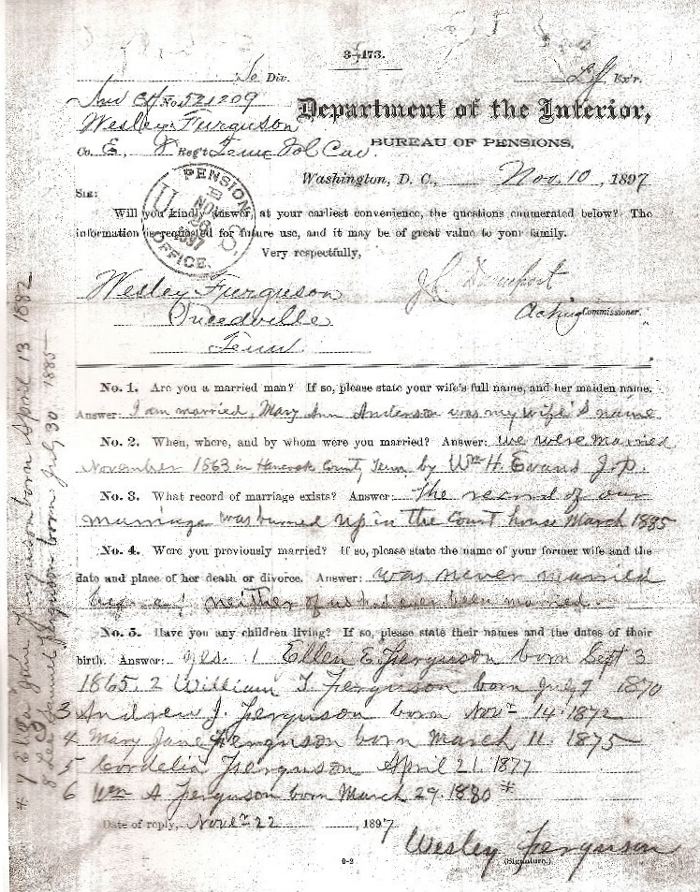 3-173.
So Div. Ex'r.
Inv Ctf No. 521209
Wesley Furguson
Department of the Interior,
Co. E, 8 Reg't Tenn Vol Cav.
BUREAU OF PENSIONS,
Washington, D. C., Nov. 10, 1897
PENSION OFFICE
U. S.
NOV
1897
SIR:
Will you kindly answer, at your earliest convenience, the questions enumerated below? The
information is requested for future use, and it may be of great value to your family.
Very respectfully,
Wesley Furguson
Tenn
Acting Commissioner.
No. 1. Are you a married man? If so, please state your wife's full name, and her maiden name.
Answer: I am married, Mary Ann Anderson was my wife's name
No. 2. When, where, and by whom were you married? Answer: we were married
November 1863 in Hancock County, Tenn. by Wm H. Evans J.P.
No. 3. What record of marriage exists? Answer: The record of our
marriage was burned up in the Court house March 1885
No. 4. Were you previously married? If so, please state the name of your former wife and the
date and place of her death or divorce. Answer: was never married
neither of us had ever been married.
No. 5. Have you any children living? If so, please state their names and the dates of their
birth. Answer: yes. 1 Ellen E. Ferguson born Sept 3
1865. 2 William T Ferguson born July 7 1870
3 Andrew J. Ferguson born Novr 14 1872
4 Mary Jane Ferguson born March 11. 1875
5 Cordelia Ferguson April 21. 1877
6 Wm A Ferguson born March 29. 1880 *
Date of reply, Novr 22, 1897
Wesley Ferguson
(Signature.)
* 7 Eliza Jane Ferguson born April 13 1882
8 Lee Samuel Ferguson born July 30 1885